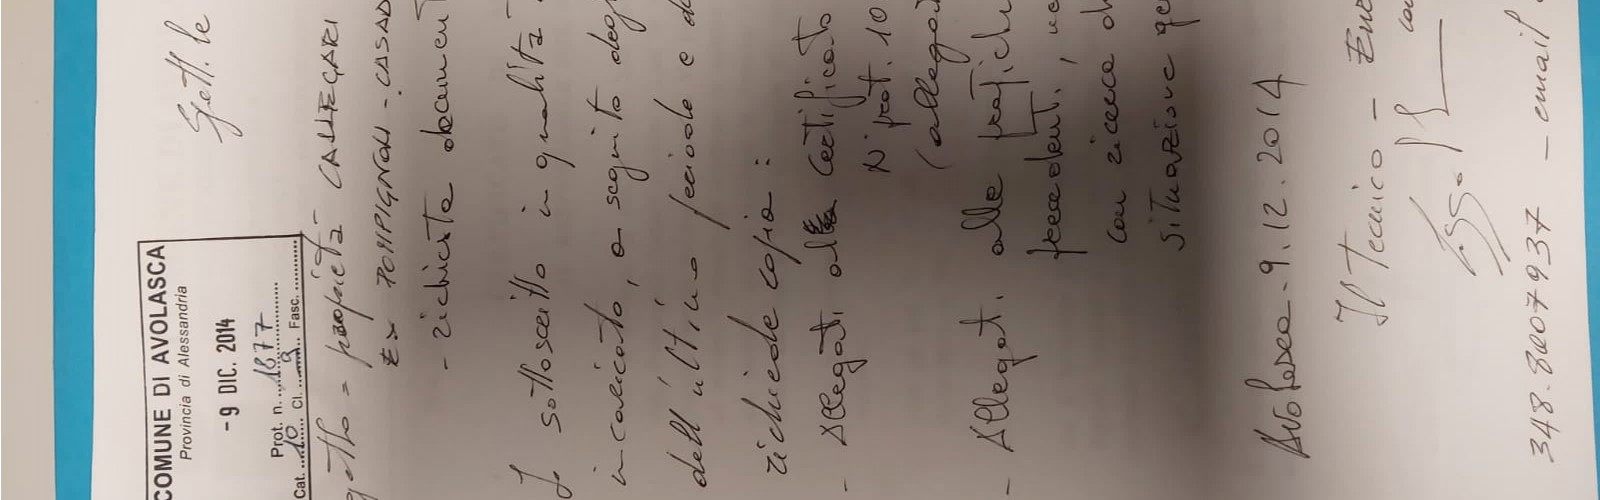 COMUNE DI AVOLASCA
Provincia di Alessandria
-9 DIC. 2014
Prot. n. 1877
Cat. 10 Cl. 9 Fasc.
Gent.le
getto = proprietà CALLEGARI
Ex POMPIGNOLI - CASAD
- richiesta document
Io sottoscritto in qualità
incaricato, a seguito degl
dell'ultimo periodo e d
richiede copia :
- Allegati al Certificato
N° prot. 10
(allegat
- Allegati alle pratiche
precedenti, ne
con ricerca d
situazione ge
Avolasca - 9.12.2014
Il Tecnico -
348.8007937 - email